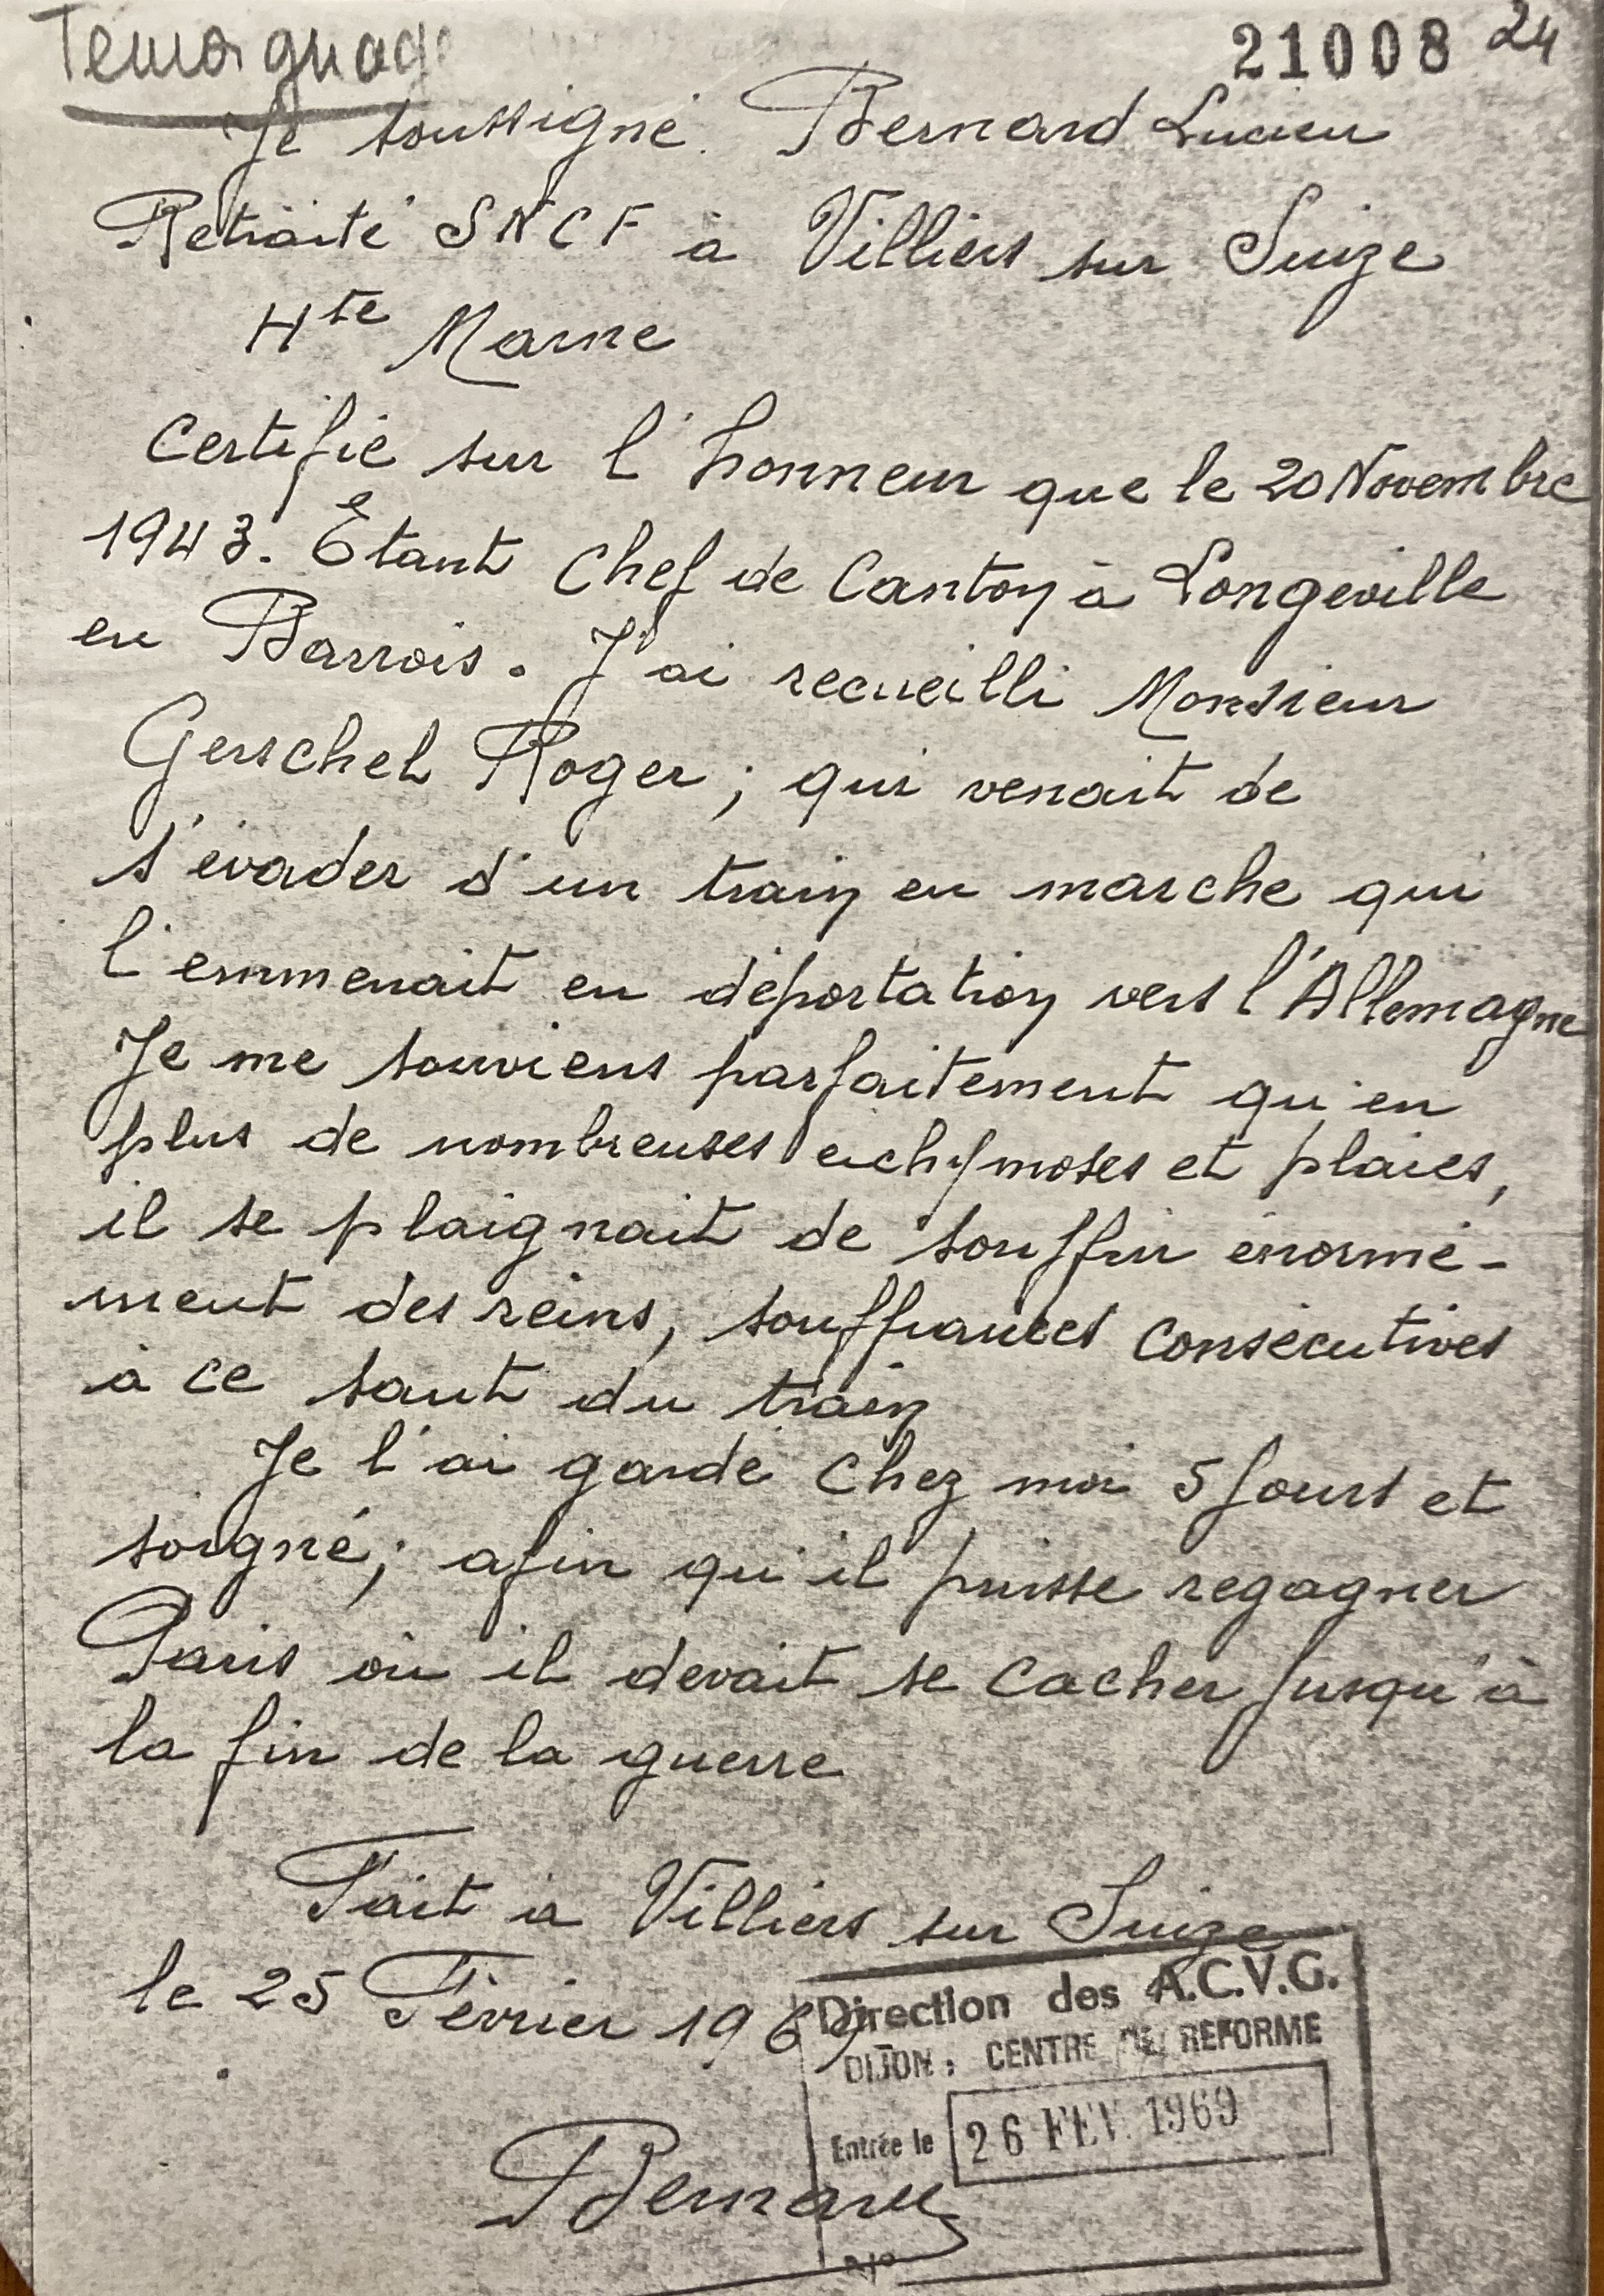 Témoignage
21008 24
Je soussigné. Bernard Lucien
Retraité SNCF à Villiers sur Suize
Hte Marne
Certifie sur l'honneur que le 20 Novembre
1943. Etant Chef de Canton à Longeville
en Barrois. J'ai recueilli Monsieur
Gerschel Roger ; qui venait de
s'évader d'un train en marche qui
l'emmenait en déportation vers l'Allemagne
Je me souviens parfaitement qu'en
plus de nombreuses echymoses et plaies,
il se plaignait de souffrir énormé-
ment des reins, souffrances consécutives
à ce saut du train
Je l'ai gardé chez moi 5 jours et
soigné ; afin qu'il puisse regagner
Paris où il devait se cacher jusqu'à
la fin de la guerre
Fait à Villiers sur Suize
le 25 Février 1969
Direction des A.C.V.G.
DIJON : CENTRE DE REFORME
Entrée le 26 FEV. 1969
Bernard
N°